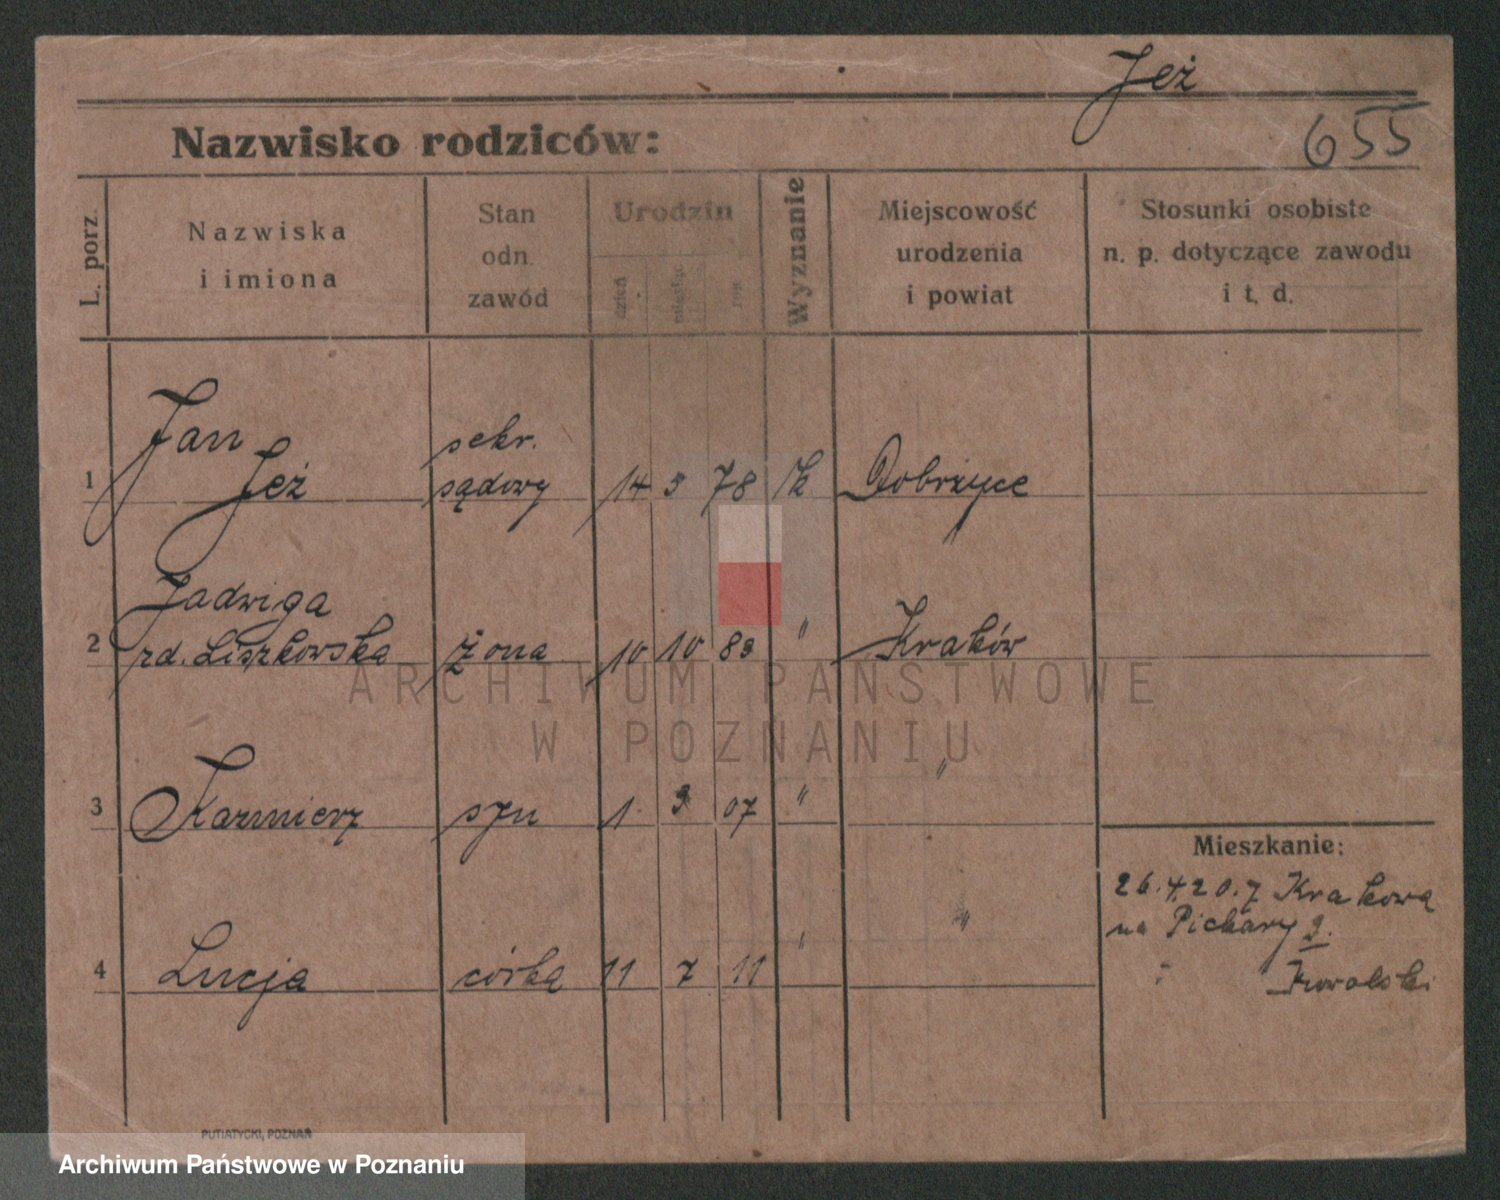 Jeż
655
Nazwisko rodziców:
L. porz.
Nazwiska
i imiona
Stan
odn.
zawód
Urodzin
dzień
miesiąc
rok
Wyznanie
Miejscowość
urodzenia
i powiat
Stosunki osobiste
n. p. dotyczące zawodu
i t. d.
Jan sekr.
1 Jeż sądowy 14 3 78 rk Dobrzyce
Jadwiga
2 rd. Liszkowska żona 10 10 83 " Kraków
3 Kazmierz syn 1 3 07 " "
4 Lucja córka 11 7 11 " "
Mieszkanie:
26.4.20. z Krakowa
na Piekary 9.
Kowalski
ARCHIWUM PAŃSTWOWE
W POZNANIU
PUTIATYCKI, POZNAŃ
Archiwum Państwowe w Poznaniu